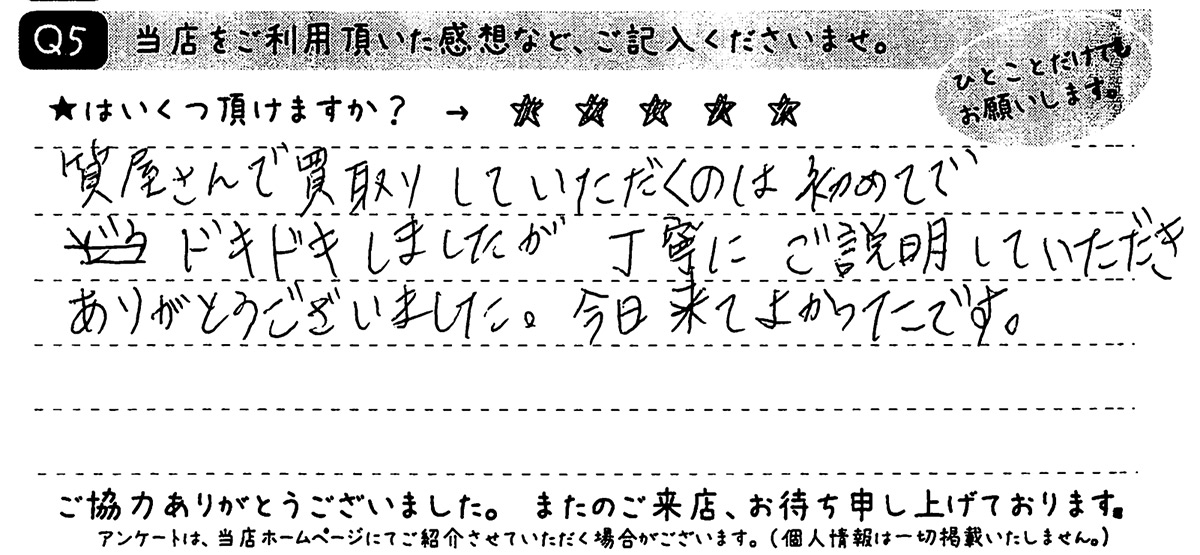 Q5 当店をご利用頂いた感想など、ご記入くださいませ。
ひとことだけでも
お願いします。
★はいくつ頂けますか? → ☆ ☆ ☆ ☆ ☆
質屋さんで買取りしていただくのは初めてで
ドキドキしましたが 丁寧に ご説明していただき
ありがとうございました。今日来てよかったです。
ご協力ありがとうございました。 またのご来店、お待ち申し上げております。
アンケートは、当店ホームページにてご紹介させていただく場合がございます。(個人情報は一切掲載いたしません。)